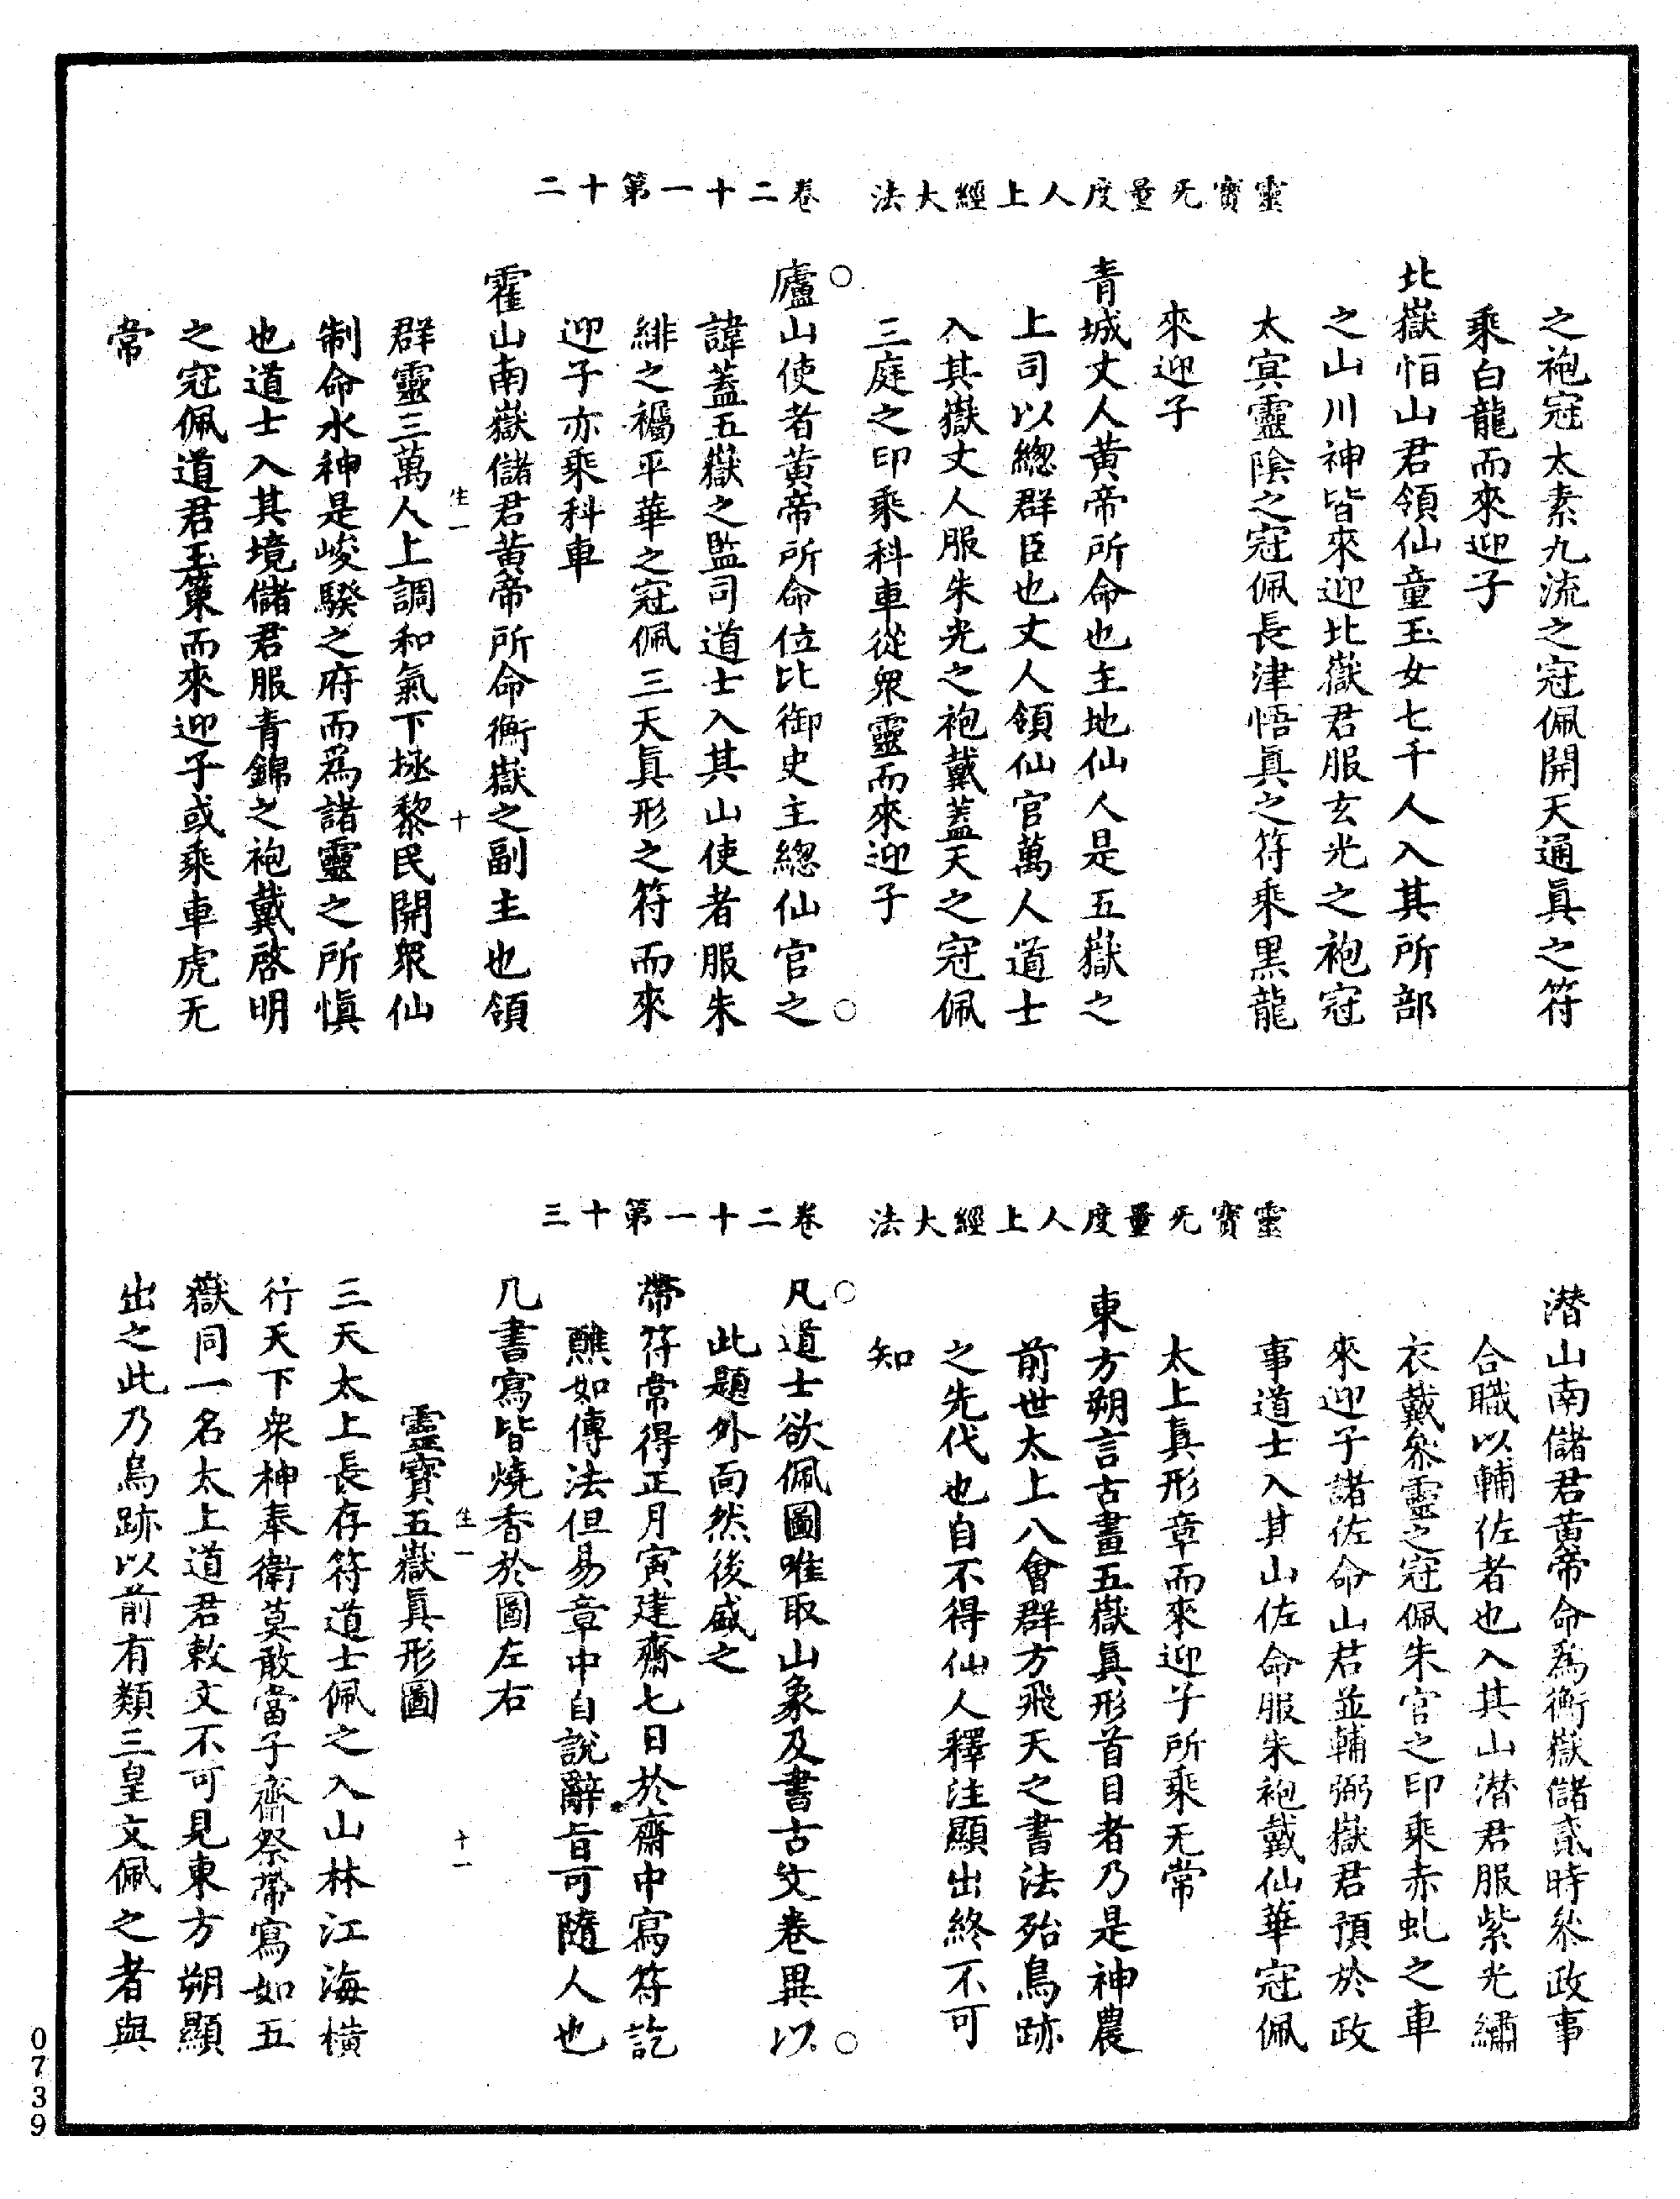 靈寶无量度人上經大法　卷二十一第十二
之袍冠太素九流之冠佩開天通真之符
乘白龍而來迎子
北嶽恒山君領仙童玉女七千人入其所部
之山川神皆來迎北嶽君服玄光之袍冠
太㝠靈陰之冠佩長津悟真之符乘黑龍
來迎子
青城丈人黄帝所命也主地仙人是五嶽之
上司以總群臣也丈人領仙官萬人道士
入其嶽丈人服朱光之袍戴蓋天之冠佩
三庭之印乘科車從衆靈而來迎子
廬山使者黄帝所命位比御史主總仙官之
諱蓋五嶽之監司道士入其山使者服朱
緋之襡平華之冠佩三天真形之符而來
迎子亦乘科車
霍山南嶽儲君黄帝所命衡嶽之副主也領
生一　十
群靈三萬人上調和氣下拯黎民開衆仙
制命水神是峻驋之府而爲諸靈之所慎
也道士入其境儲君服青錦之袍戴啓明
之冠佩道君玉策而來迎子或乘車虎无
常
靈寶无量度人上經大法　卷二十一第十三
潜山南儲君黄帝命爲衡嶽儲貳時叅政事
合職以輔佐者也入其山潜君服紫光繡
衣戴叅靈之冠佩朱官之印乘赤虬之車
來迎子諸佐命山君並輔弼嶽君預於政
事道士入其山佐命服朱袍戴仙華冠佩
太上真形章而來迎子所乘无常
東方朔言古畫五嶽真形首目者乃是神農
前世太上八會群方飛天之書法殆鳥跡
之先代也自不得仙人釋注顯出終不可
知
凡道士欲佩圖唯取山象及書古文卷異以
此題外面然後盛之
帶符常得正月寅建齋七日於齋中寫符訖
醮如傳法但易章中自說辭旨可隨人也
凡書寫皆燒香於圖左右
靈寶五嶽真形圖
生一　十一
三天太上長存符道士佩之入山林江海横
行天下衆神奉衛莫敢當子齋祭帶寫如五
嶽同一名太上道君敕文不可見東方朔顯
出之此乃鳥跡以前有類三皇文佩之者與
0739